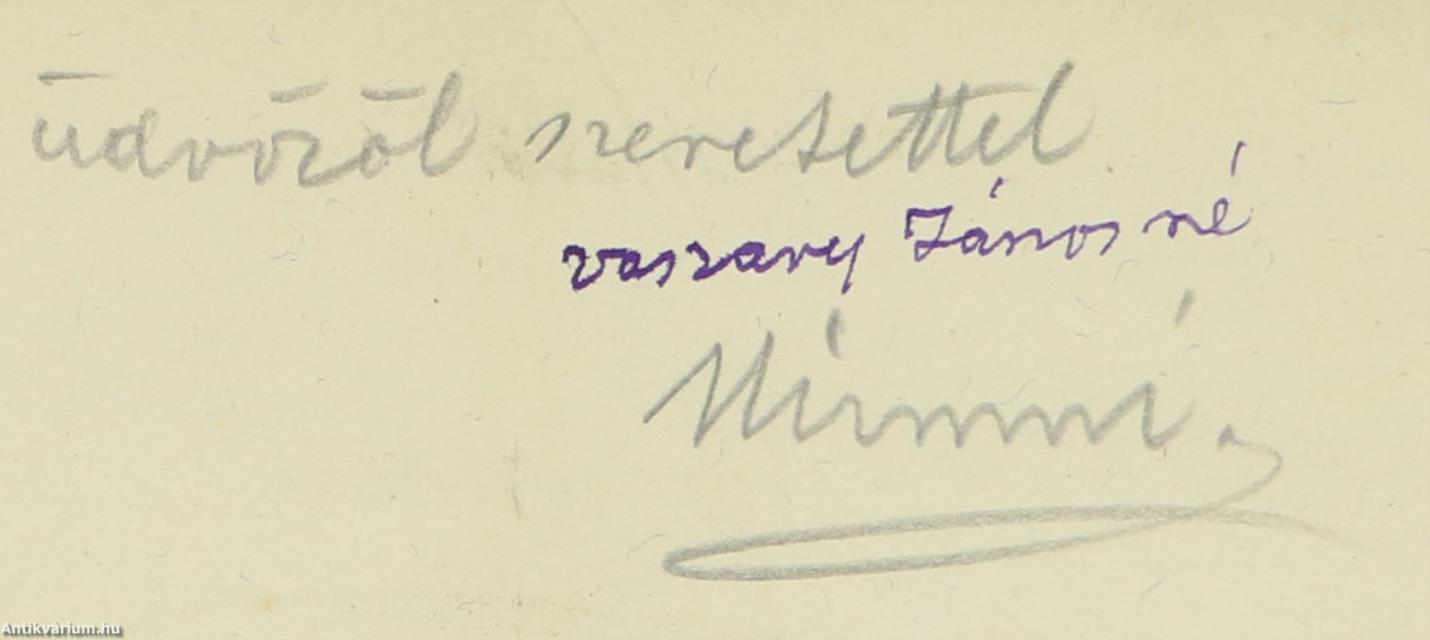 üdvözöl szeretettel
Vaszary Jánosné
Mimmi
Antikvárium.hu